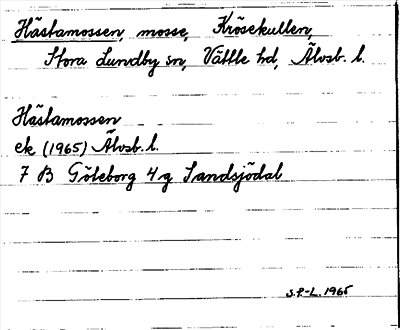 Hästamossen, mosse, Krösekullen,
Stora Lundby sn, Vättle hd, Älvsb. l.
Hästamossen
ek (1965) Älvsb. l.
7 B Göteborg 4 g Sandsjödal
S.F-L. 1965